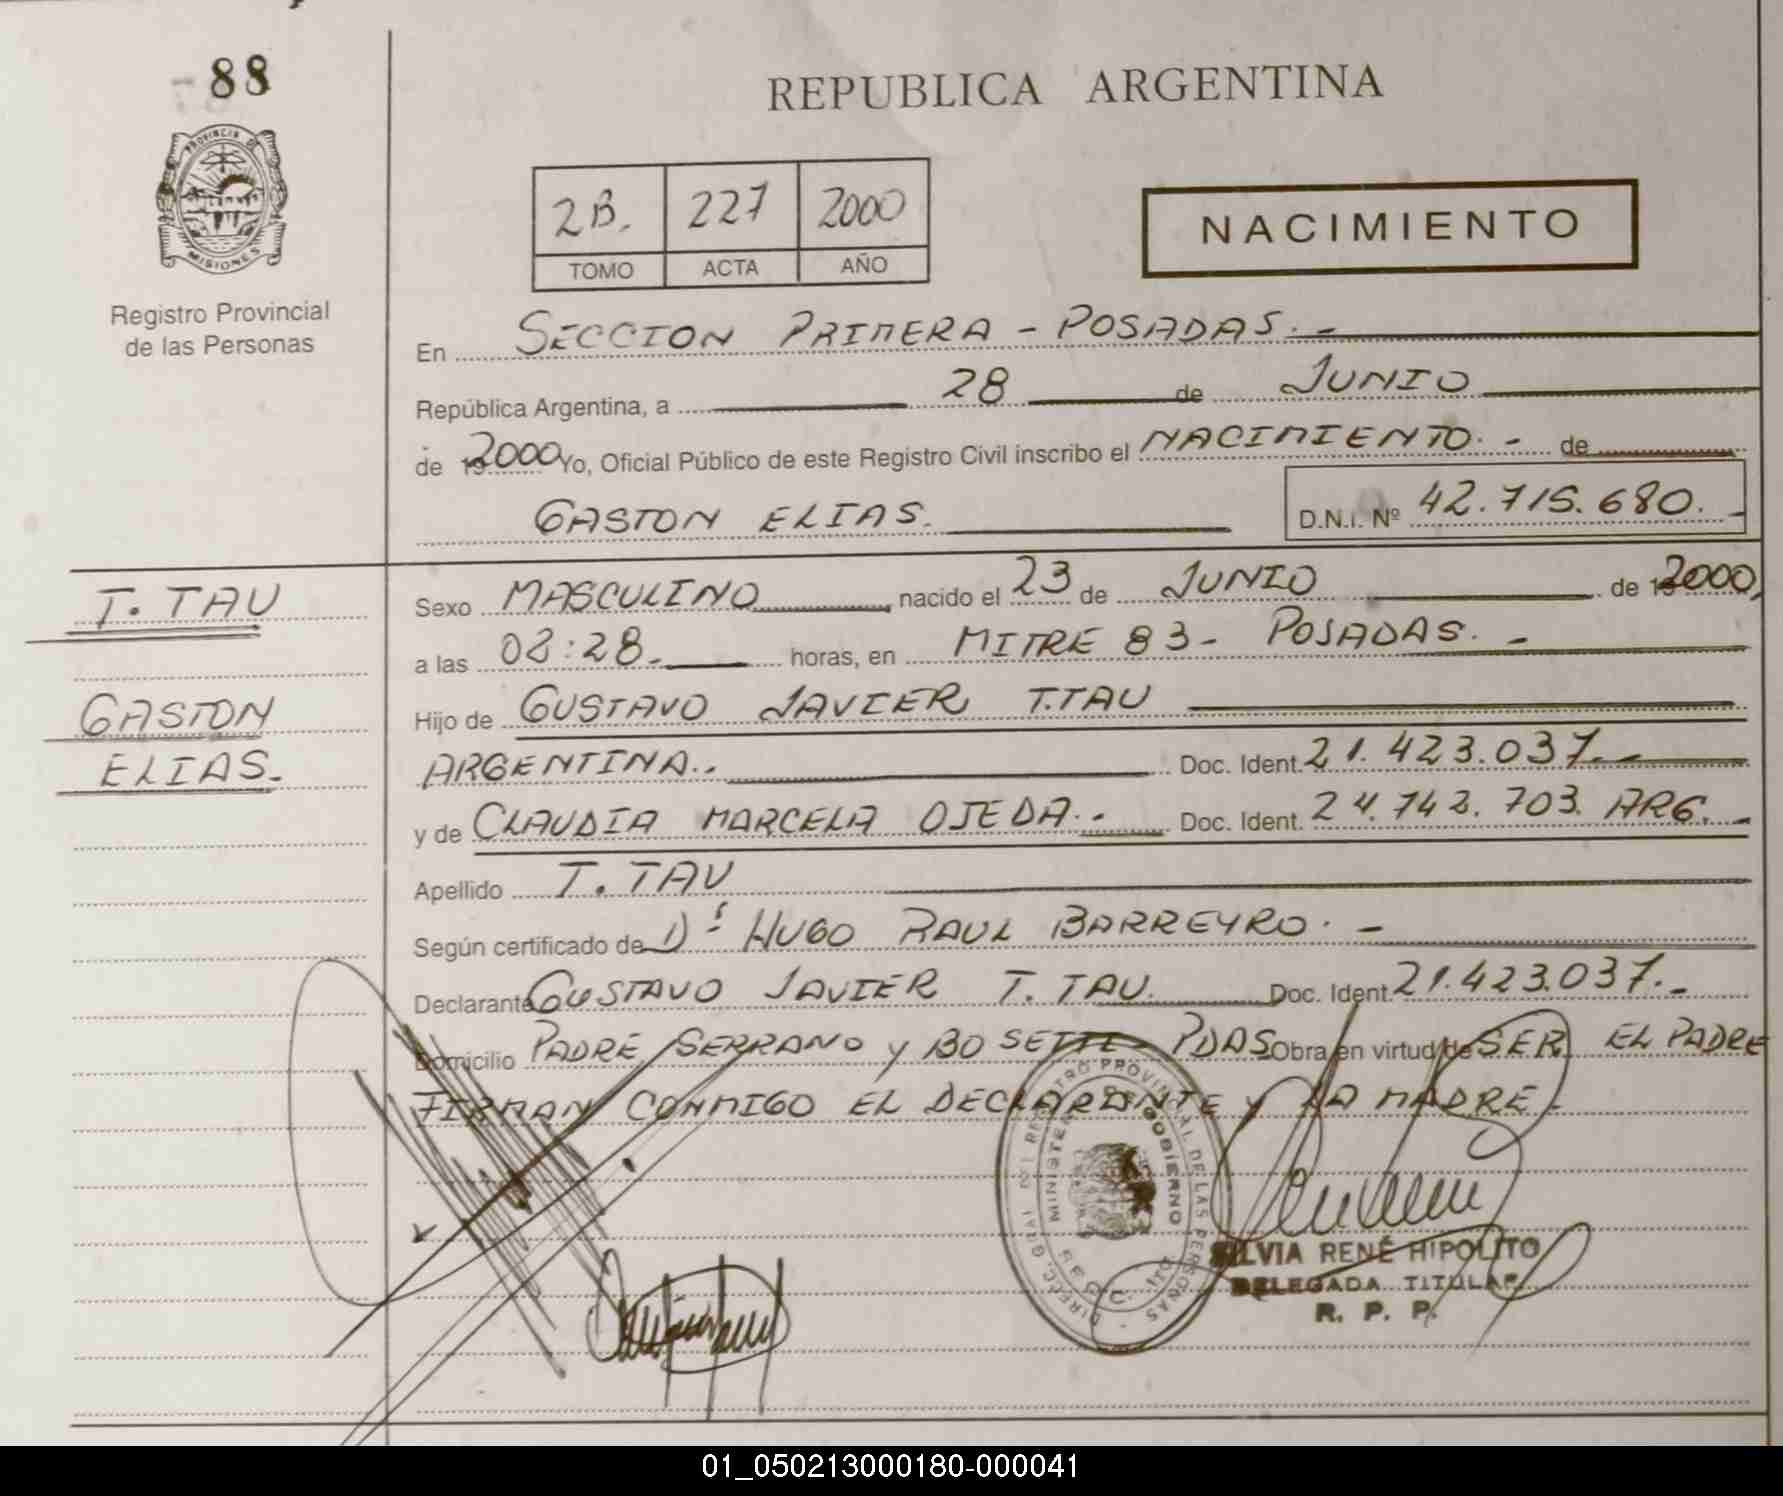 88
REPUBLICA ARGENTINA
PROVINCIA DE MISIONES
Registro Provincial
de las Personas
2B. 227 2000
TOMO ACTA AÑO
NACIMIENTO
En SECCION PRIMERA - POSADAS. -
República Argentina, a 28 de JUNIO
de 2000 Yo, Oficial Público de este Registro Civil inscribo el NACIMIENTO. - de
GASTON ELIAS. D.N.I. Nº 42.715.680. -
T. TAU
GASTON
ELIAS.
Sexo MASCULINO nacido el 23 de JUNIO de 2000,
a las 02:28. horas, en MITRE 83 - POSADAS. -
Hijo de GUSTAVO JAVIER T.TAU
ARGENTINA.. Doc. Ident. 21.423.037. -
y de CLAUDIA MARCELA OJEDA.. Doc. Ident. 24.742.703. ARG. -
Apellido T. TAU
Según certificado de Dr HUGO RAUL BARREYRO. -
Declarante GUSTAVO JAVIER T. TAU. Doc. Ident. 21.423.037. -
Domicilio PADRE SERRANO y BOSETTI - PDAS Obra en virtud de SER EL PADRE
FIRMAN CONMIGO EL DECLARANTE y LA MADRE -
DIREC. GRAL DEL REGISTRO PROVINCIAL DE LAS PERSONAS
MINISTERIO DE GOBIERNO
SILVIA RENÉ HIPOLITO
DELEGADA TITULAR
R. P. P.
01_050213000180-000041